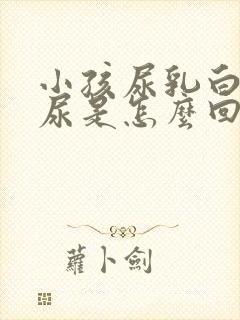 小孩尿乳白
尿是怎麼回
蘿卜劍